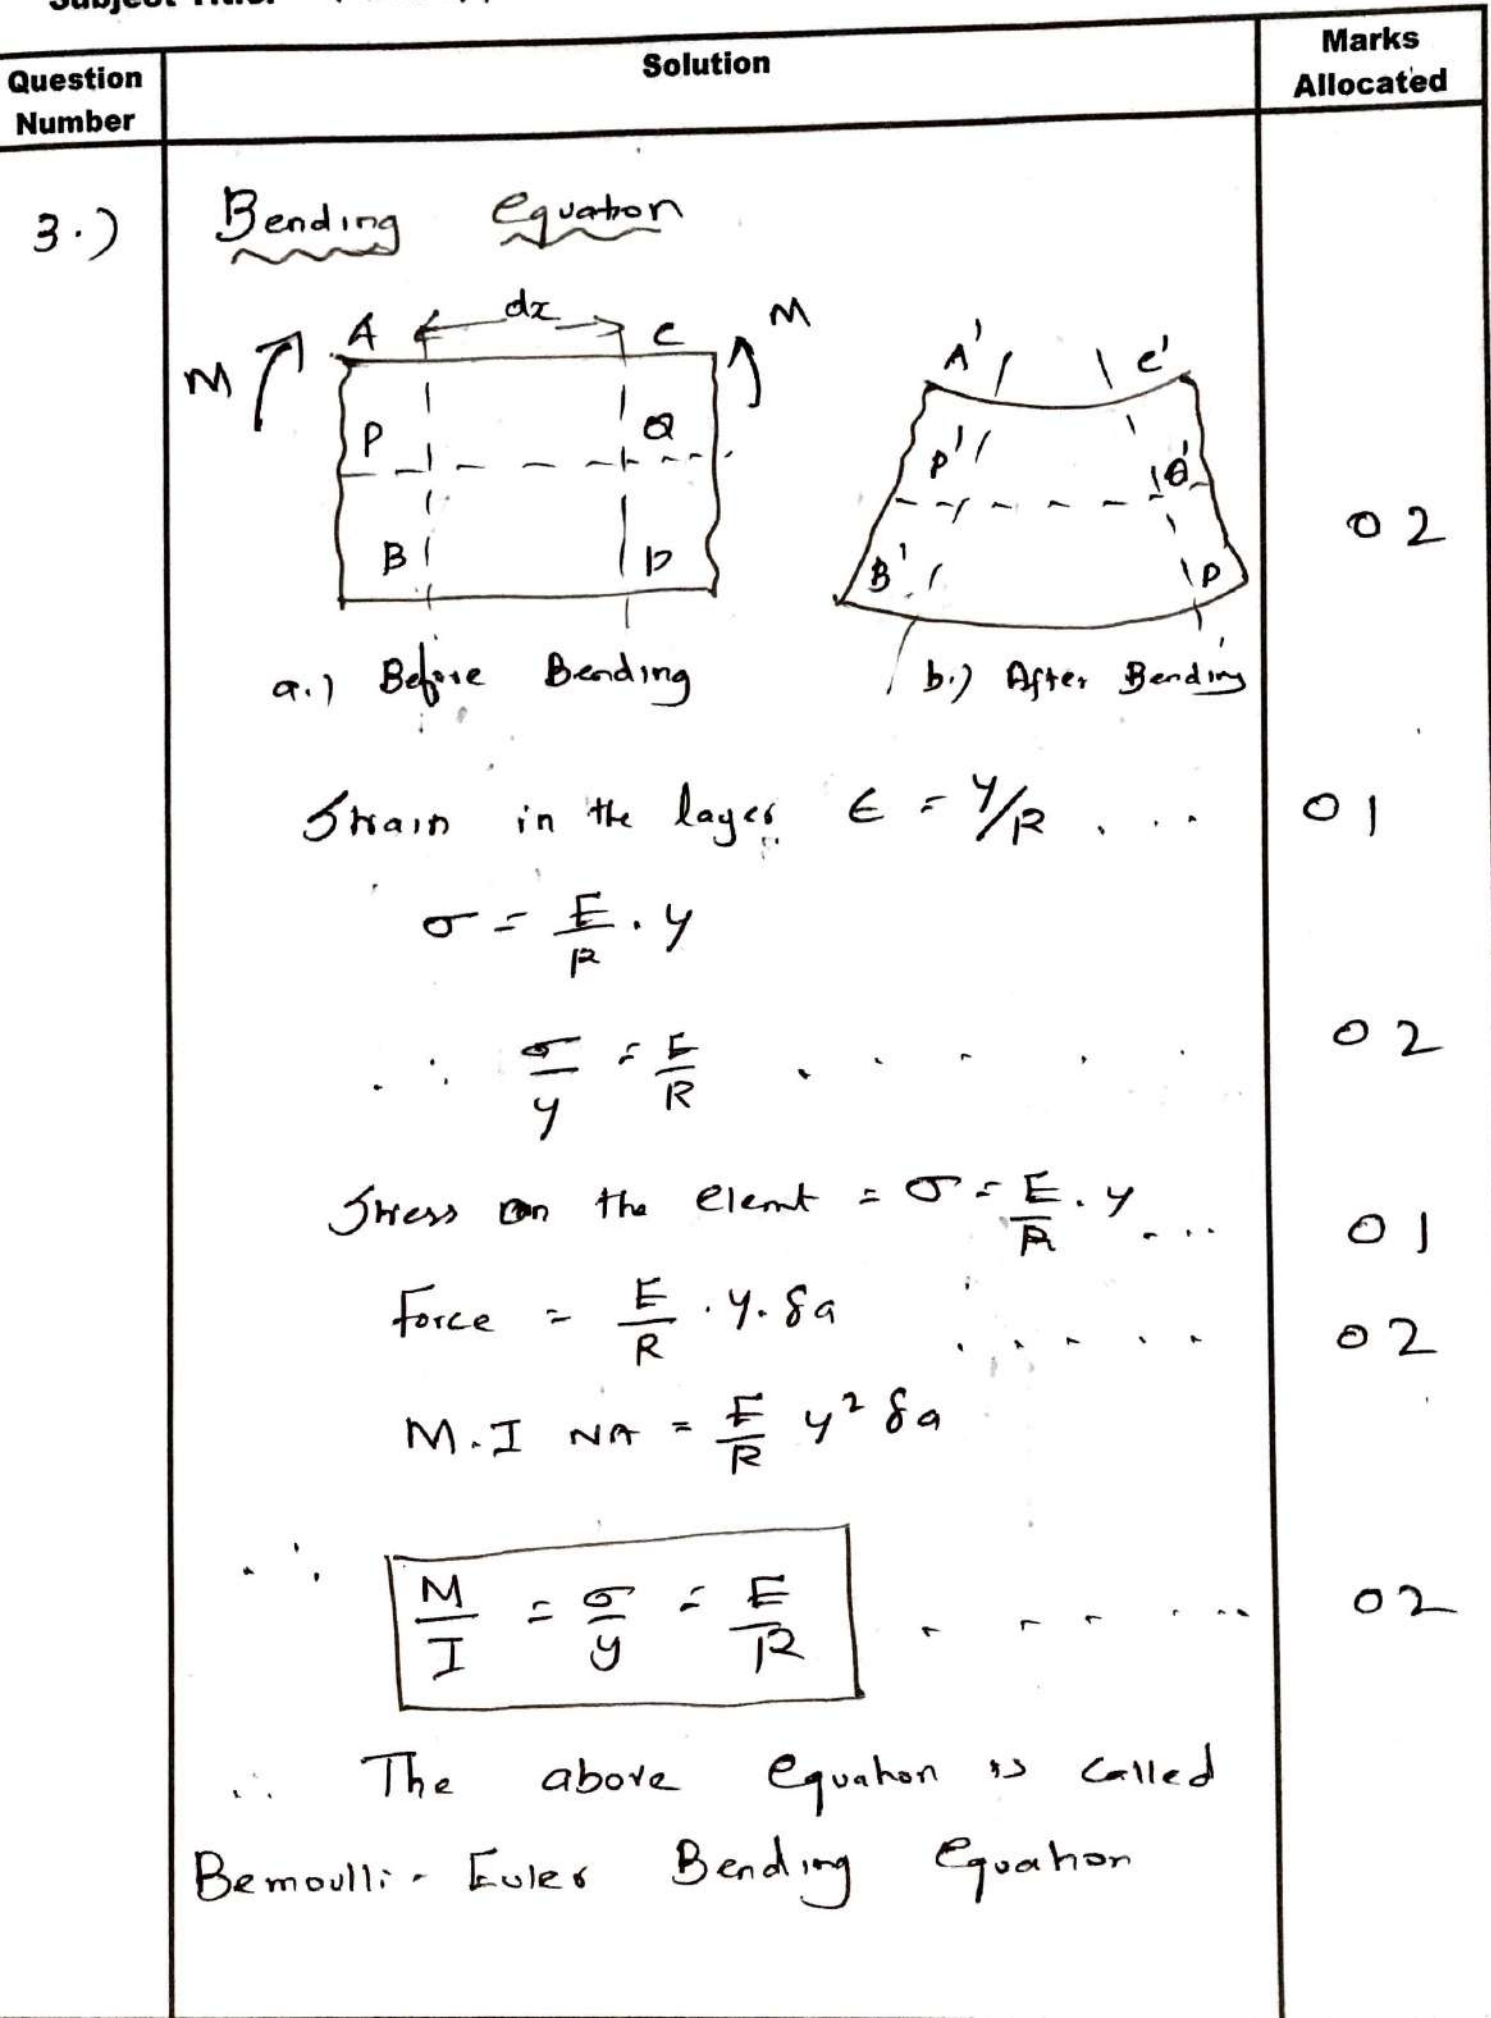 Question
Number
Solution
Marks
Allocated
3.) Bending equation
dx
M A C M
P Q
B D
A' C'
P' Q'
B' D
02
a.) Before Bending b.) After Bending
Strain in the layer ϵ = y/R . . . 01
σ = E/R . y
∴ σ/y = E/R . . . . . 02
Stress on the elemt = σ = E/R . y . . . 01
Force = E/R . y. δa . . . . . 02
M.I NA = E/R y² δa
∴ M/I = σ/y = E/R . . . . . . 02
∴ The above equation is called
Bernoulli - Euler Bending equation